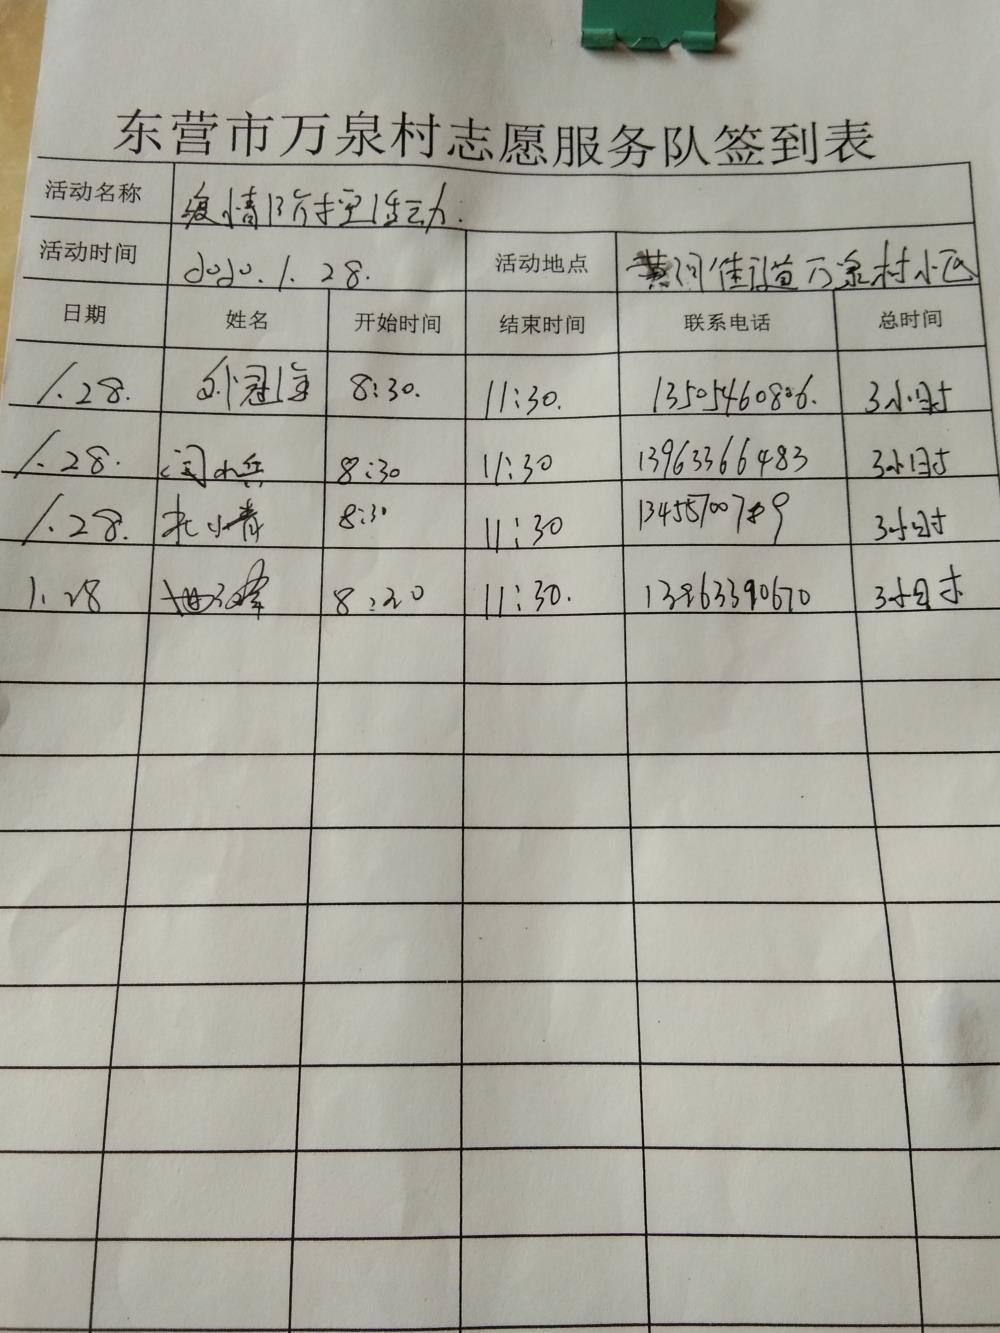 东营市万泉村志愿服务队签到表
活动名称 疫情防控活动.
活动时间 2020.1.28. 活动地点 黄河街道万泉村小区
日期 姓名 开始时间 结束时间 联系电话 总时间
1.28. 8:30. 11:30. 13505460806. 3小时
1.28. 闫小兵 8:30 11:30 13963366483 3小时
1.28. 8:30 11:30 3小时
1.28 8:20 11:30. 13863390670 3小时